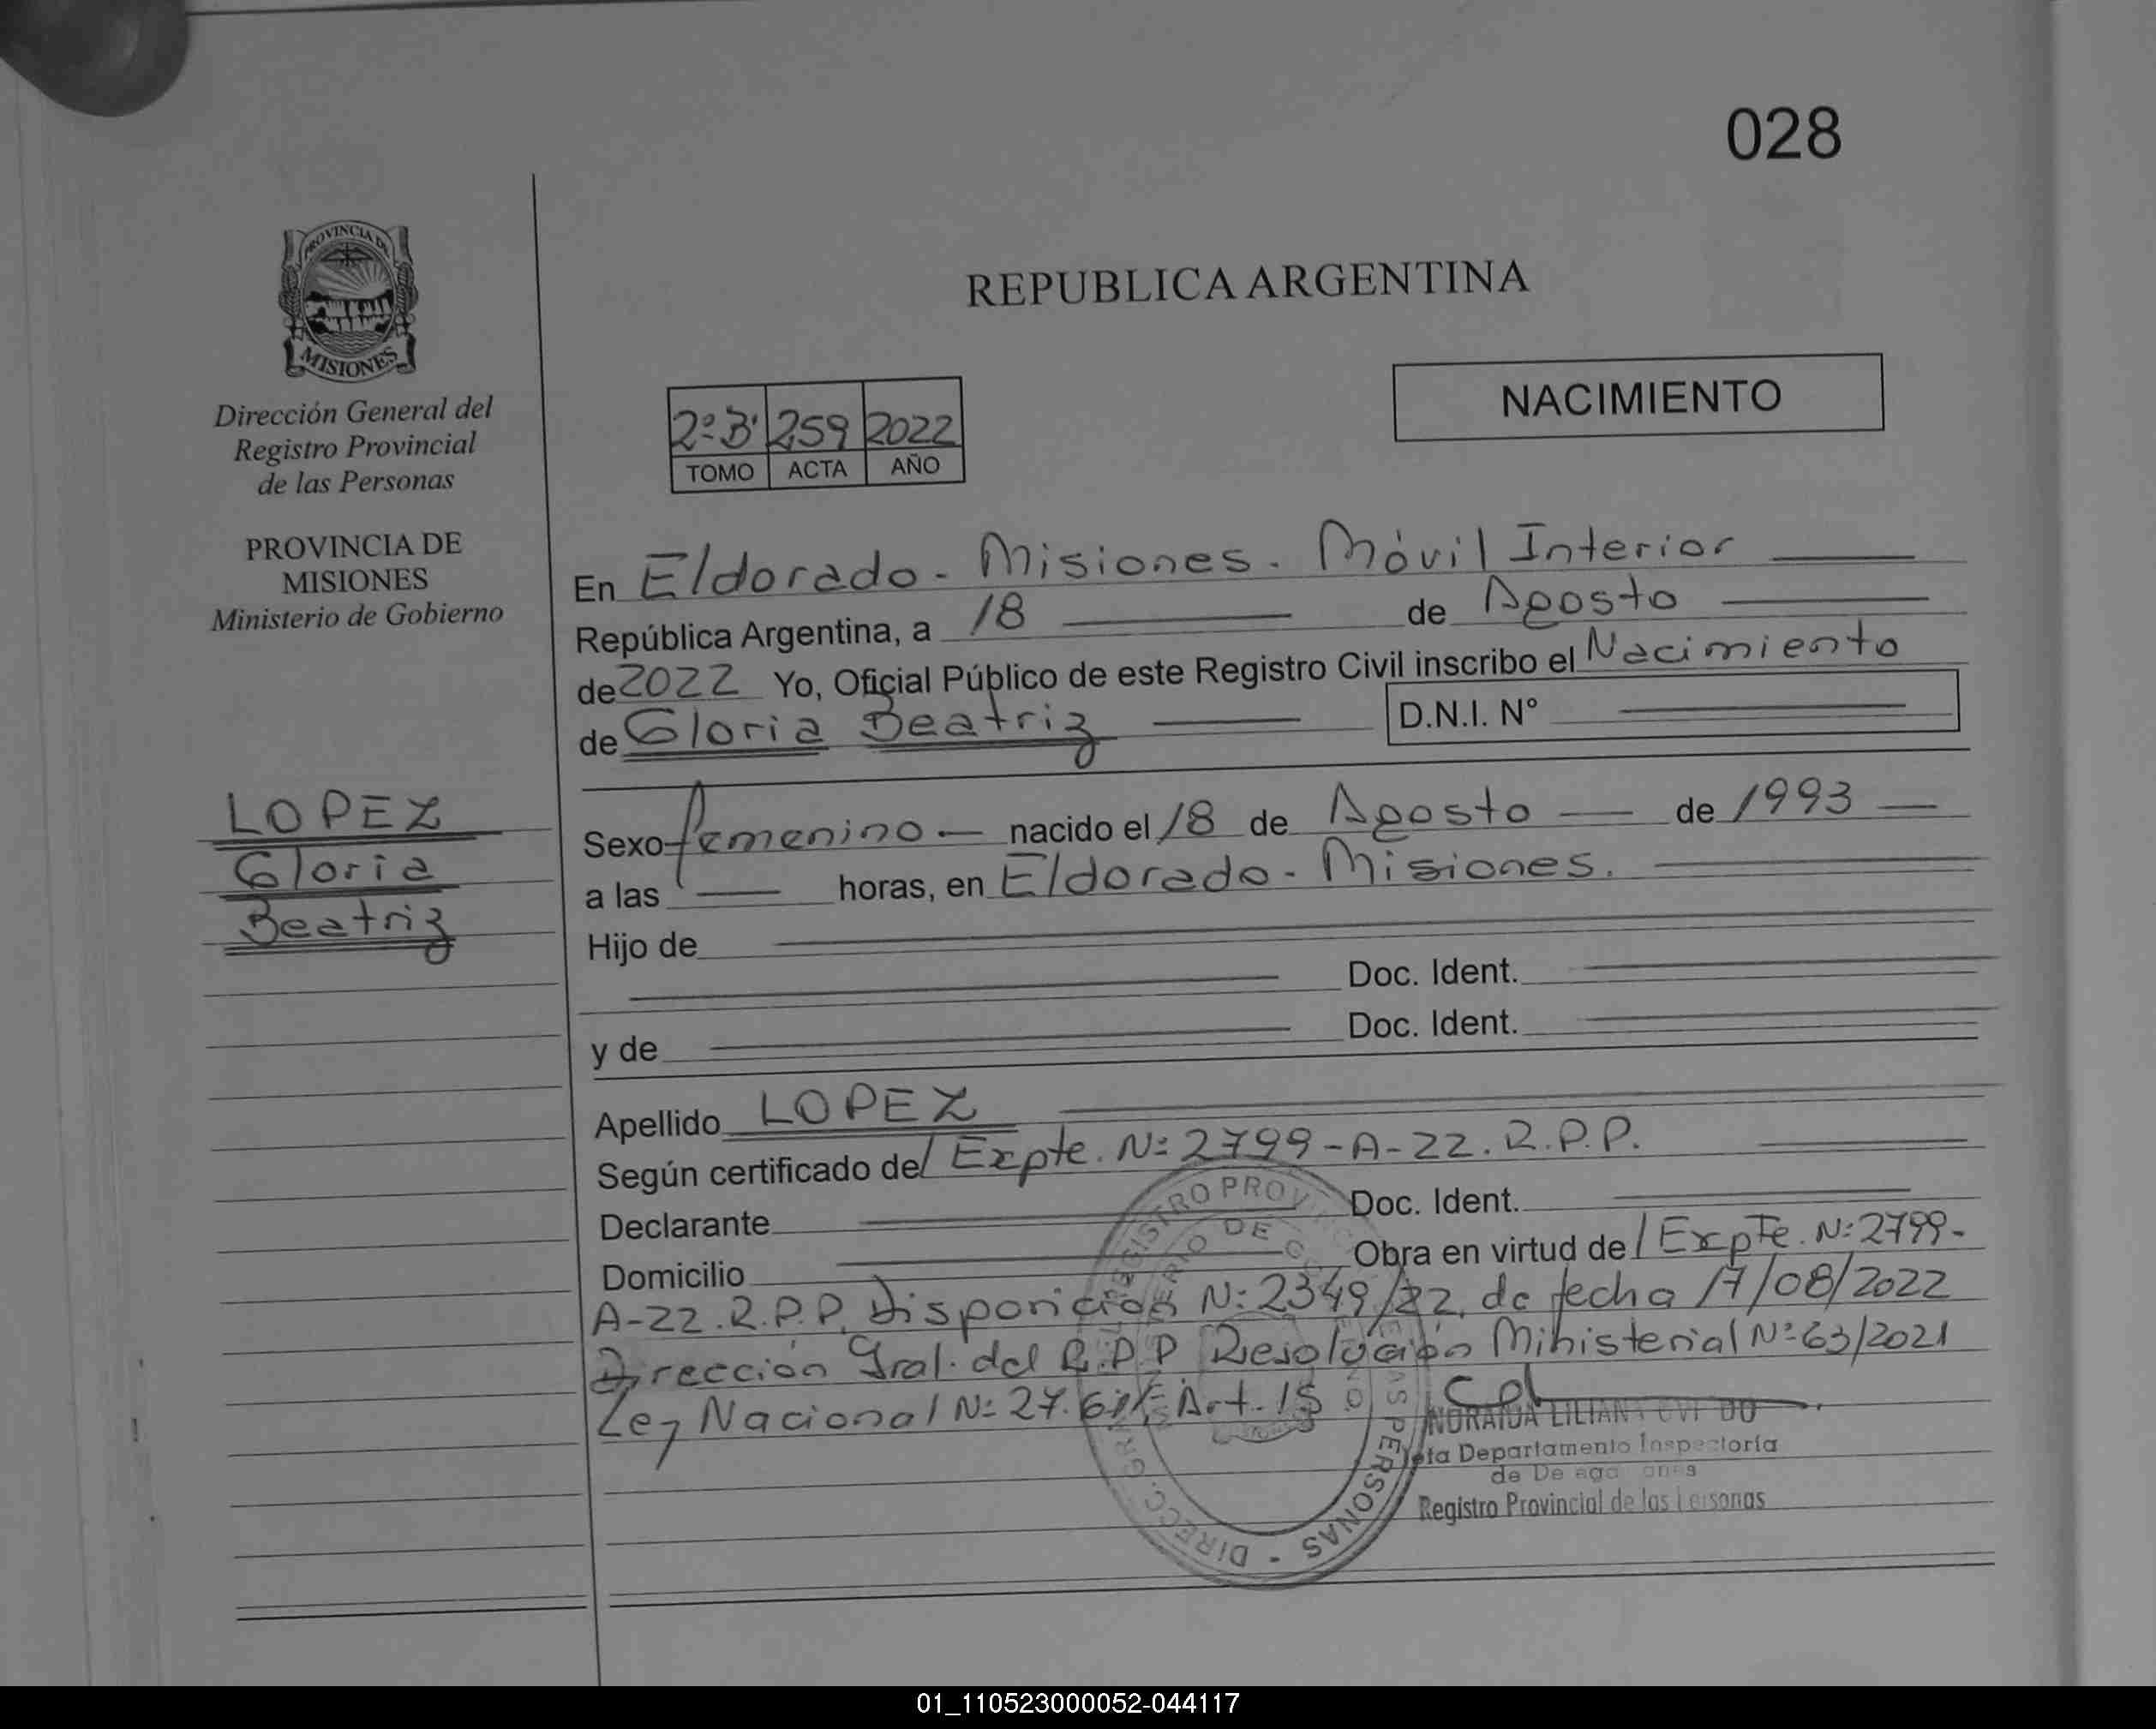 028
PROVINCIA DE
MISIONES
Dirección General del
Registro Provincial
de las Personas
PROVINCIA DE
MISIONES
Ministerio de Gobierno
LOPEZ
Gloria
Beatriz
REPUBLICA ARGENTINA
NACIMIENTO
2º B' 259 2022
TOMO ACTA AÑO
En Eldorado - Misiones. Móvil Interior
República Argentina, a 18 de Agosto
de 2022 Yo, Oficial Público de este Registro Civil inscribo el Nacimiento
de Gloria Beatriz D.N.I. N°
Sexo femenino - nacido el 18 de Agosto - de 1993 -
a las horas, en Eldorado - Misiones.
Hijo de
Doc. Ident.
y de Doc. Ident.
Apellido LOPEZ
Según certificado del Expte. Nº 2799-A-22. R.P.P.
Declarante Doc. Ident.
Domicilio Obra en virtud del Expte. Nº 2799-
A-22. R.P.P. Disposición Nº 2349/22 de fecha 17/08/2022
Dirección Gral. del R.P.P Resolución Ministerial Nº 63/2021
Ley Nacional Nº 27.611 Art. 15
NORAIDA LILIANA
Departamento Inspectoría
de
Registro Provincial de las Personas
REGISTRO PROV
DE
AS PERSONAS - DIRECC. GRAL
01_110523000052-044117